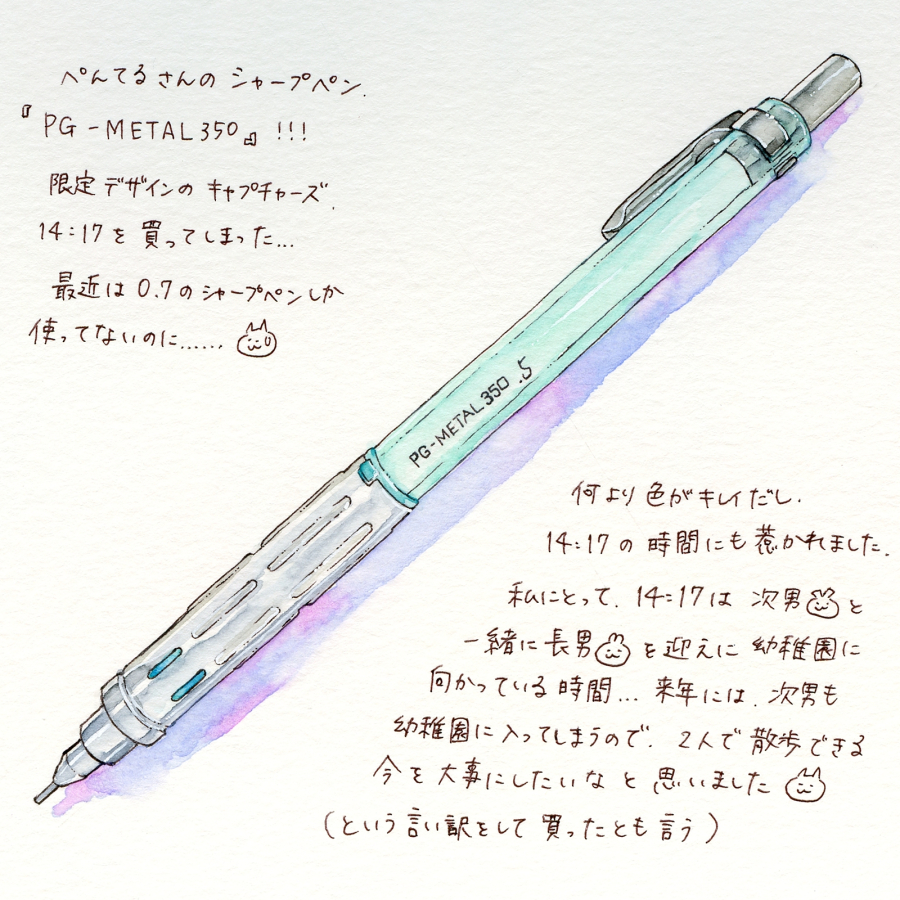 ぺんてるさんの シャープペン.
『PG-METAL350』!!!
限定デザインの キャプチャーズ.
14:17を 買ってしまった...
最近は 0.7のシャープペンしか
使ってないのに......
PG-METAL350 .5
何より 色がキレイだし.
14:17の 時間にも 惹かれました.
私にとって. 14:17は 次男と
一緒に 長男を迎えに 幼稚園に
向かっている 時間... 来年には. 次男も
幼稚園に入ってしまうので. 2人で 散歩できる
今を 大事にしたいな と 思いました
(という言い訳をして 買ったとも 言う)